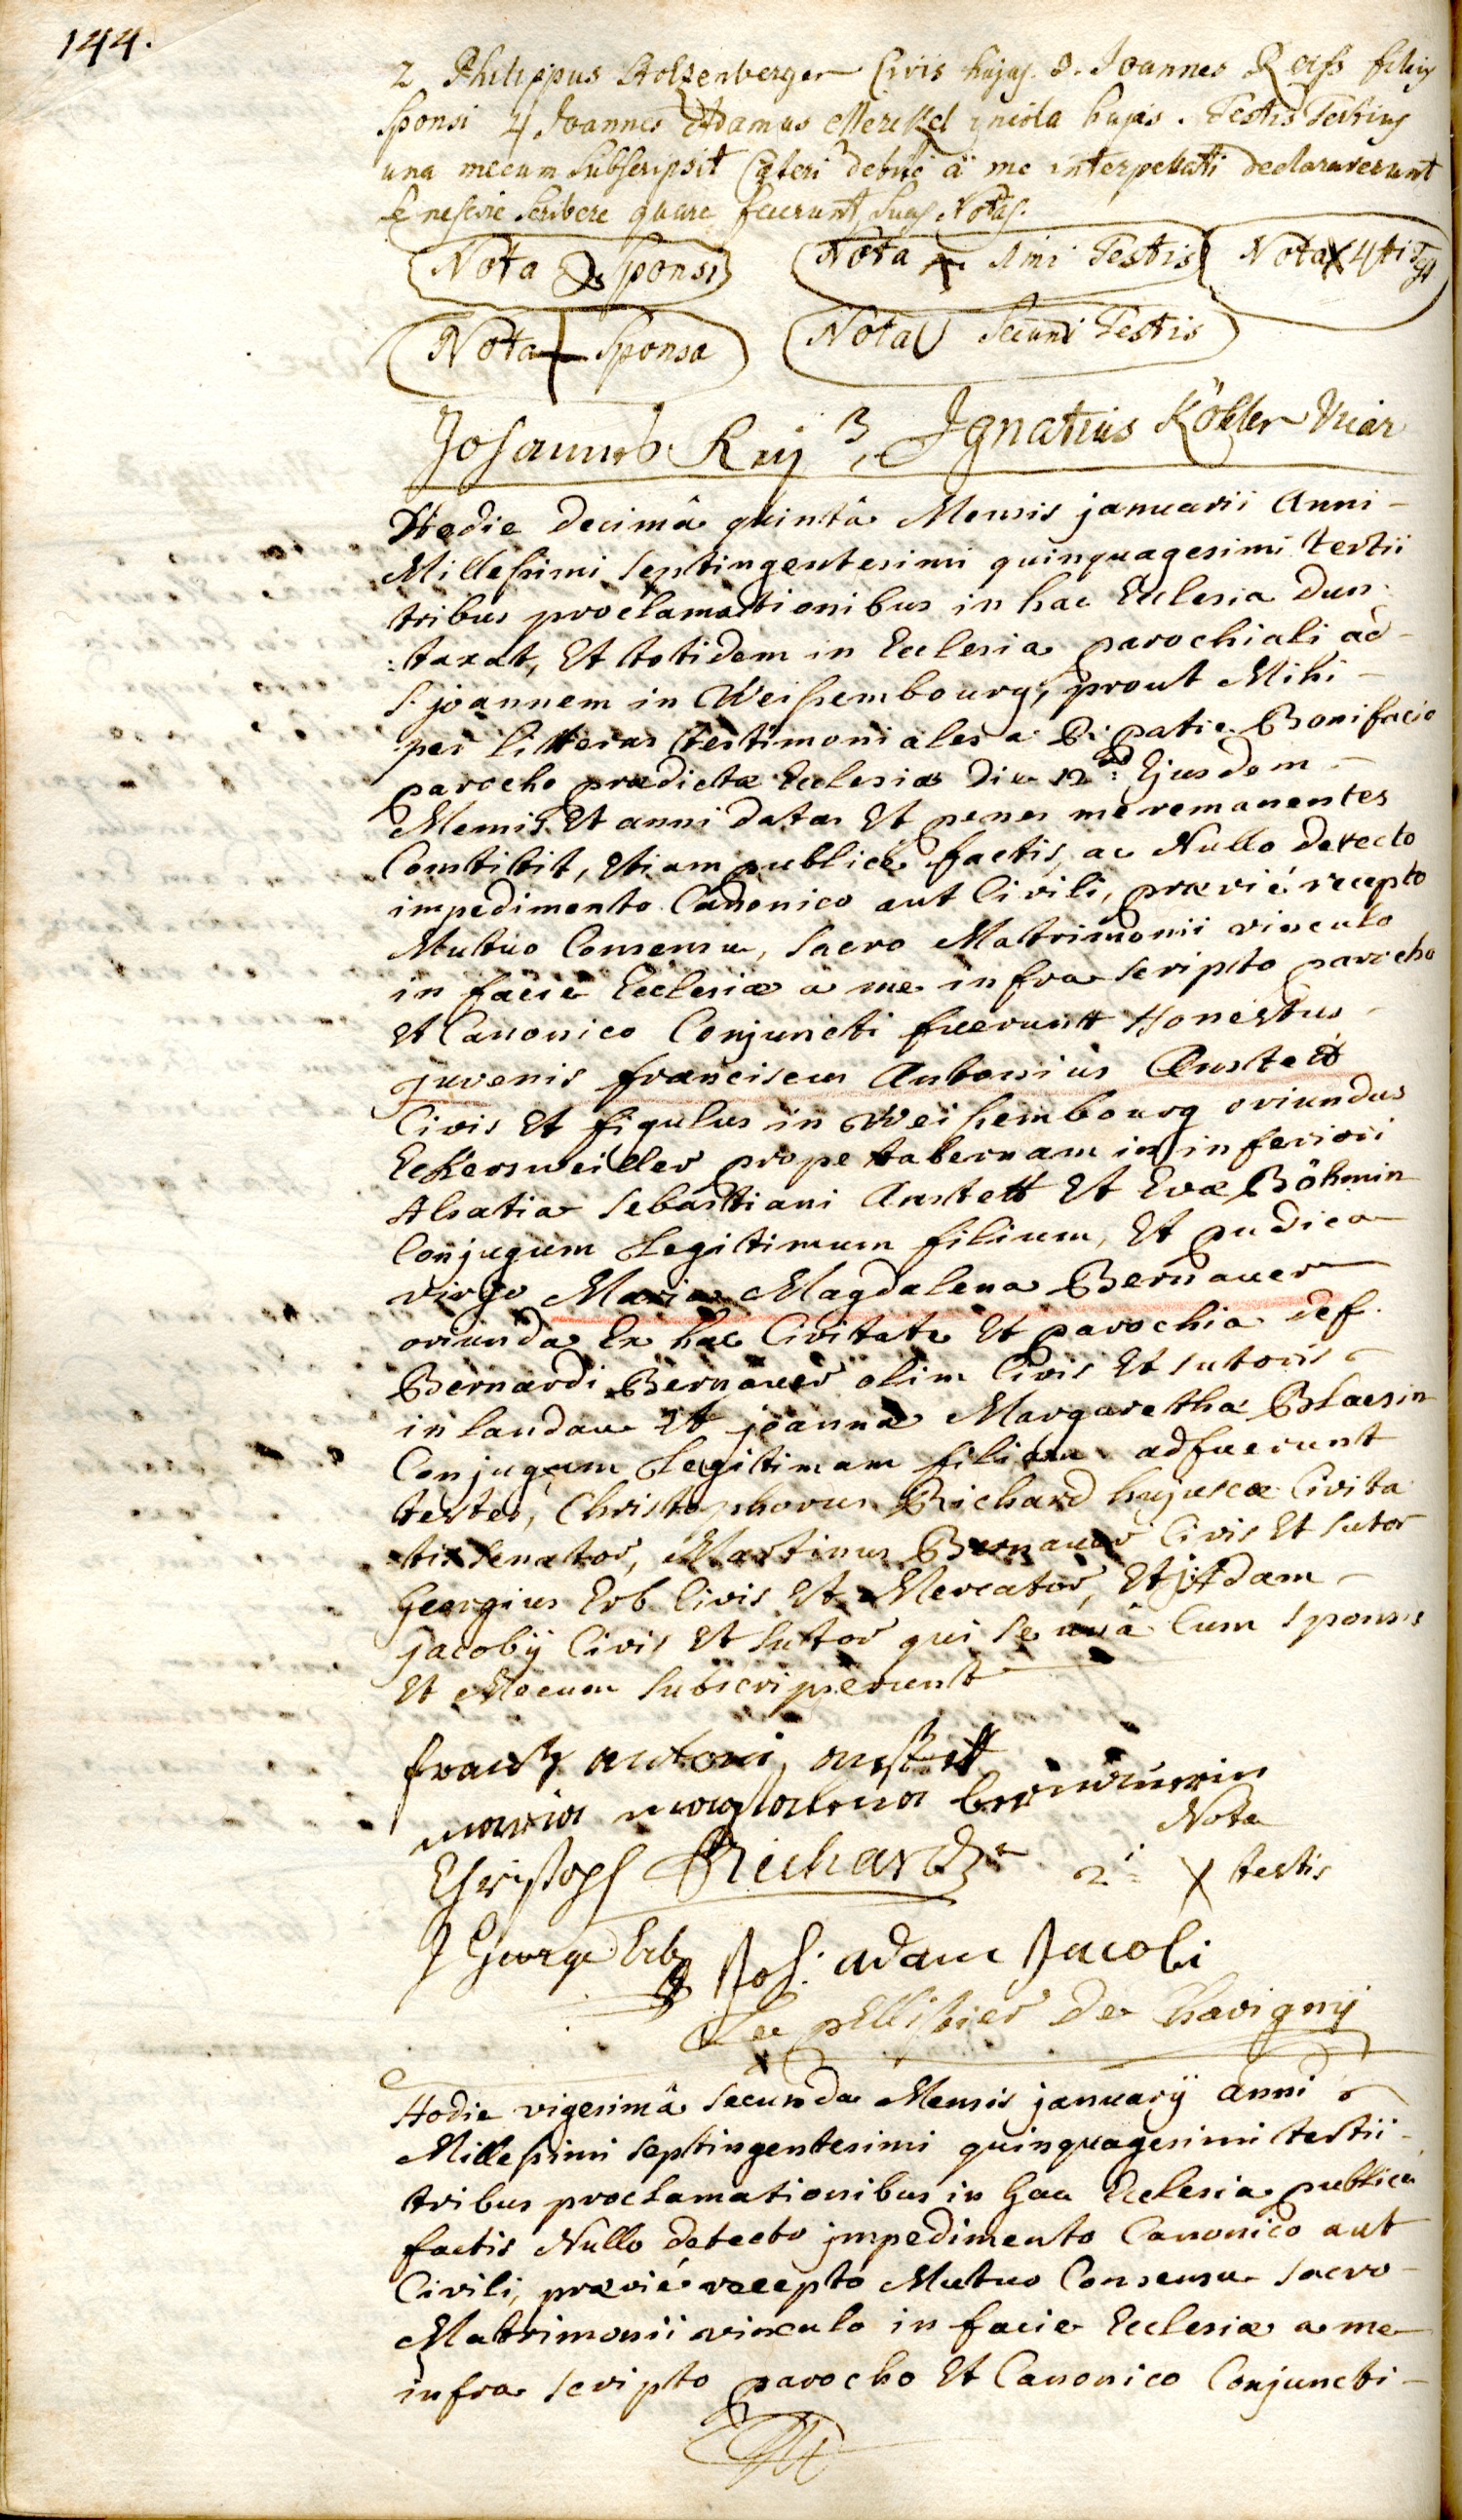 144.
2 Philippus Stolzenberger Civis hujas. 3. Joannes Reiss filius
Sponsi 4 Joannes Adamus Merckel incola hujas. Testis Tertius
una mecum Subscripsit Cæteri debite à me interpellati declaraverunt
se nescire scribere quare fecerunt suas Notas.
Nota Sponsi
Nota 1mi Testis
Nota X 4ti Test
Nota + Sponsa
Nota U Secundi Testis
Johannes 3 Ignatius Köhler Vicar
Hodie decimâ quintâ Mensis januarii Anni
Millessimi Septingentesimi quinquagesimi tertii
tribus proclamationibus in hac Ecclesia dun
:taxat, Et totidem in Ecclesia parochiali ad
S. joannem in Weissembourg, prout Mihi
per litteras testimoniales a R. patre Bonifacio
parocho prædictæ Ecclesiæ die 12 Ejusdem
Mensis Et anni datas Et penes me remanentes
Constitit, Etiam publicè factis, ac Nullo detecto
impedimento Canonico aut Civili, prævié recepto
Mutuo Consensu, Sacro Matrimonii vinculo
in facie Ecclesiæ a me infra scripto parocho
Et Canonico Conjuncti fuerunt Honestus
juvenis franciscus Antonius Anstett
Civis Et figulus in Weissembourg oriundus
Eckersweiller prope tabernam in inferiori
Alsatia Sebastiani Anstett Et Evæ Böhmin
Conjugum Legitimum filium, Et pudica
virgo Maria Magdalena Bernauer
oriunda Ex hac Civitate Et parochia def.
Bernardi Bernauer olim Civis Et sutoris
in landau Et joannæ Margarethæ Blaesin
Conjugum Legitimam filiam adfuerunt
testes, Christophorus Richard hujusce Civita
tis Senator, Martinus Bernauer Civis Et Sutor
Georgius Erb Civis Et Mercator, Et j: Adam
jacobÿ Civis Et Sutor qui se unâ Cum Sponsis
Et Mecum Subscripserunt
frantz antoni anstett
maria magdalena bernauerin
Nota
Christoph Richard 2i X testis
J George Erb Joh. adam Jacobi
Le pellissier de Chavigny
Hodie vigesimâ secunda Mensis januarÿ anni
Millessimi septingentesimi quinquagesimi tertii
tribus proclamationibus in hac Ecclesia publicè
factis Nullo detecto impedimento Canonico aut
Civili, prævié recepto Mutuo Consensu Sacro
Matrimonii vinculo in facie Ecclesiæ a me
infra scripto parocho Et Canonico Conjuncti